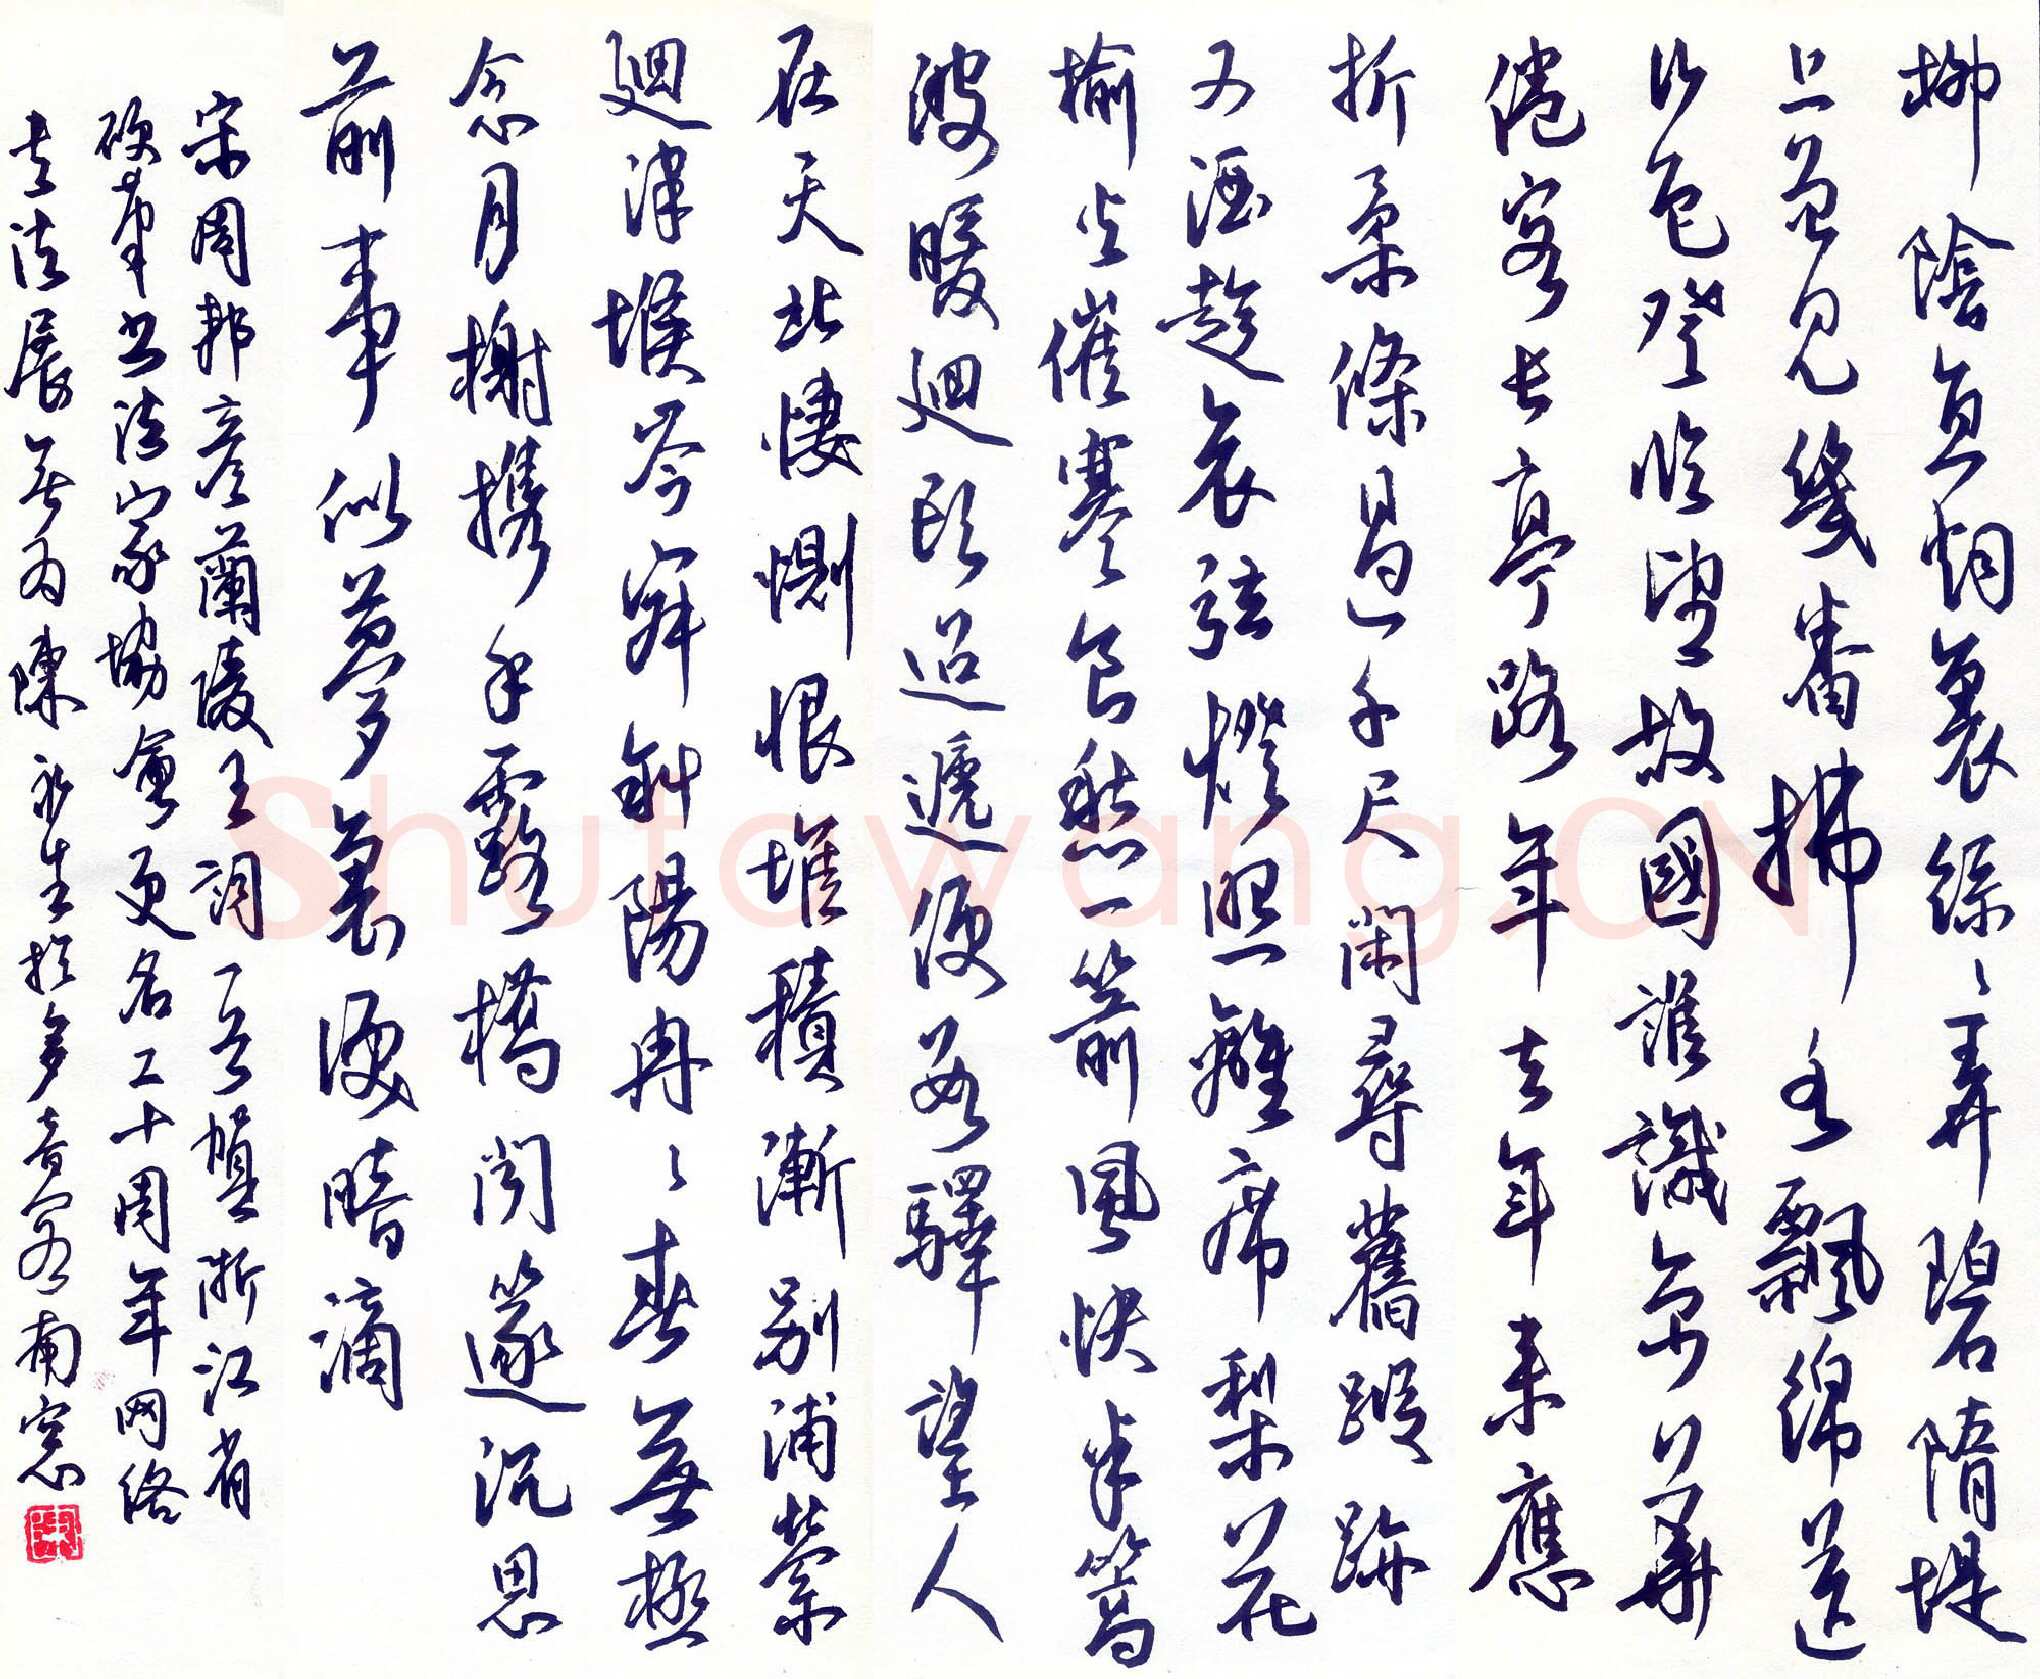 柳陰直烟裏絲〻弄碧隋堤
上曾見幾番拂水飄綿送
行色登臨望故國誰識京華
倦客長亭路年去年來應
折柔條過千尺閑尋舊蹤跡
又酒趁哀弦燈照離席梨花
榆火催寒食愁一箭風快半篙
波暖迴頭迢遞便數驛望人
在天北悽惻恨堆積漸别浦縈
迴津堠岑寂斜陽冉〻春無極
念月榭携手露橋聞笛沉思
前事似夢裏淚暗滴
宋周邦彦蘭陵王詞一首賀浙江省
硬筆书法家協會更名二十周年网络
书法展 陳 生於 南窓
Shufawang.CN